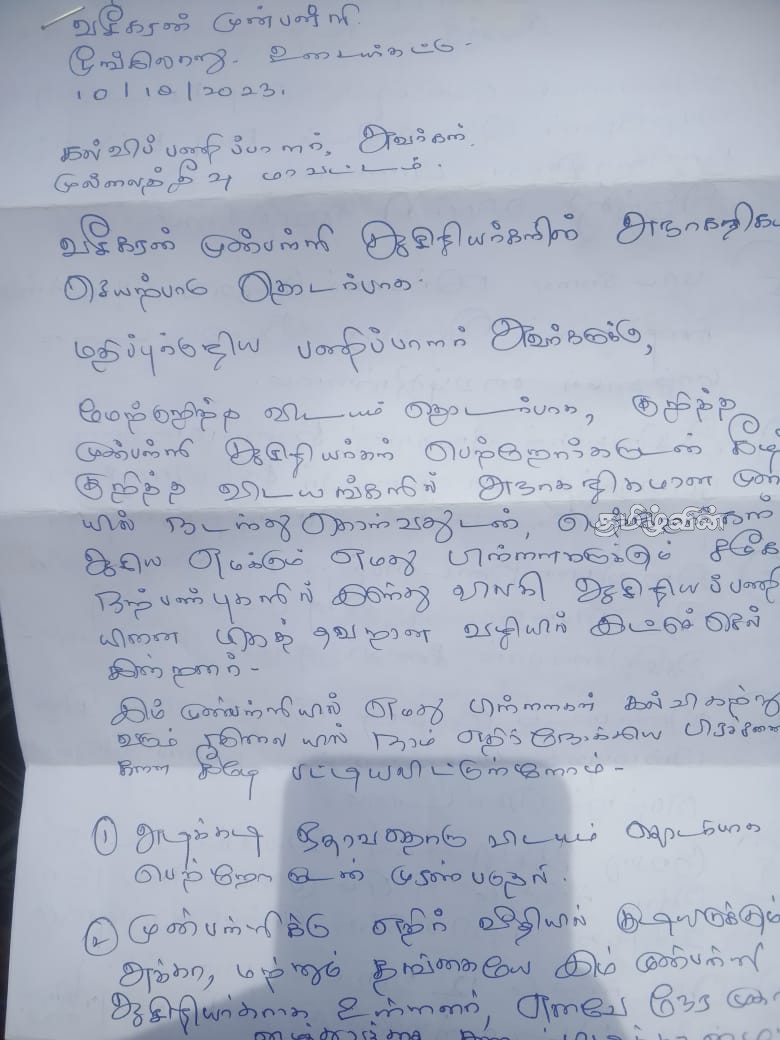 வசீகரன் முன்பள்ளி
உடையார்கட்டு.
10/10/2023.
கல்விப் பணிப்பாளர், அவர்கள்.
முல்லைத்தீவு மாவட்டம்.
வசீகரன் முன்பள்ளி ஆசிரியர்களின் அநாகரிக
செயற்பாடு தொடர்பாக.
மதிப்புக்குரிய பணிப்பாளர் அவர்களுக்கு,
மேற்குறித்த விடயம் தொடர்பாக, குறித்த
முன்பள்ளி ஆசிரியர்கள் பெற்றோர்களுடன் கீழ்
குறித்த விடயங்களில் அநாகரிகமான முறை
யில் நடந்து கொள்வதுடன், தமிழ்வின்
ஆகிய எமக்கும் எமது பிள்ளைகளுக்கும்
நற்பண்புகளில் இருந்து விலகி ஆசிரியப்பணி
யினை மிகத் தவறான வழியில் இட்டுச் செல்
கின்றனர்.
இம் முன்பள்ளியில் எமது பிள்ளைகள் கல்வி கற்று
வரும் நிலையில் நாம் எதிர்நோக்கிய பிரச்சனை
களை கீழே பட்டியலிட்டுள்ளோம்.
① அடிக்கடி தேவையற்ற விடயம் தொடர்பாக
பெற்றோருடன் முரண்படுதல்.
② முன்பள்ளிக்கு எதிர் வீதியில் குடியிருக்கும்
அக்கா, மற்றும் தங்கையே இம் முன்பள்ளி
ஆசிரியர்களாக உள்ளனர், எனவே நேர